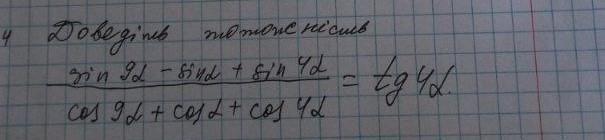 4 Доведіть тотожність
sin 9α - sinα + sin 4α
cos 9α + cosα + cos 4α = tg 4α.